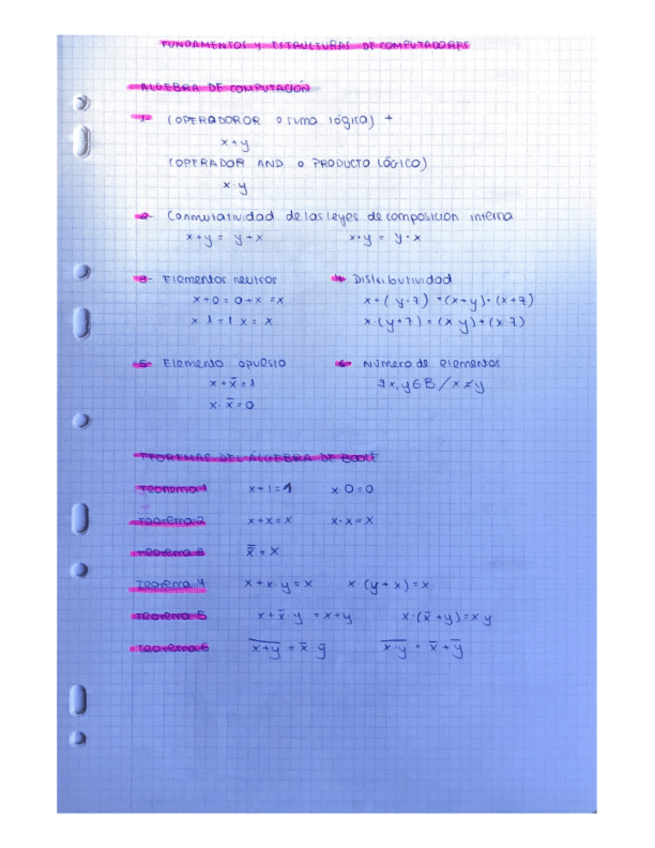 FUNDAMENTOS Y ESTRUCTURAS DE COMPUTADORES
ALGEBRA DE COMPUTACIÓN
1- (OPERADOR OR o suma lógica) +
x+y
(OPERADOR AND o PRODUCTO LÓGICO)
x·y
2- Conmutatividad de las leyes de composición interna
x+y = y+x x·y = y·x
3- Elementos neutros 4- Distributividad
x+0=0+x=x x+(y·z)=(x+y)·(x+z)
x·1=1·x=x x·(y+z)=(x·y)+(x·z)
5- Elemento opuesto 6- Número de elementos
x+x̄=1 ∃x,y∈B/x≠y
x·x̄=0
TEOREMAS DEL ÁLGEBRA DE BOOLE
Teorema 1 x+1=1 x·0=0
Teorema 2 x+x=x x·x=x
Teorema 3 x̿=x
Teorema 4 x+x·y=x x·(y+x)=x
Teorema 5 x+x̄·y=x+y x·(x̄+y)=x y
Teorema 6 x̅+̅y̅=x̄·ȳ x̅·̅y̅=x̄+ȳ